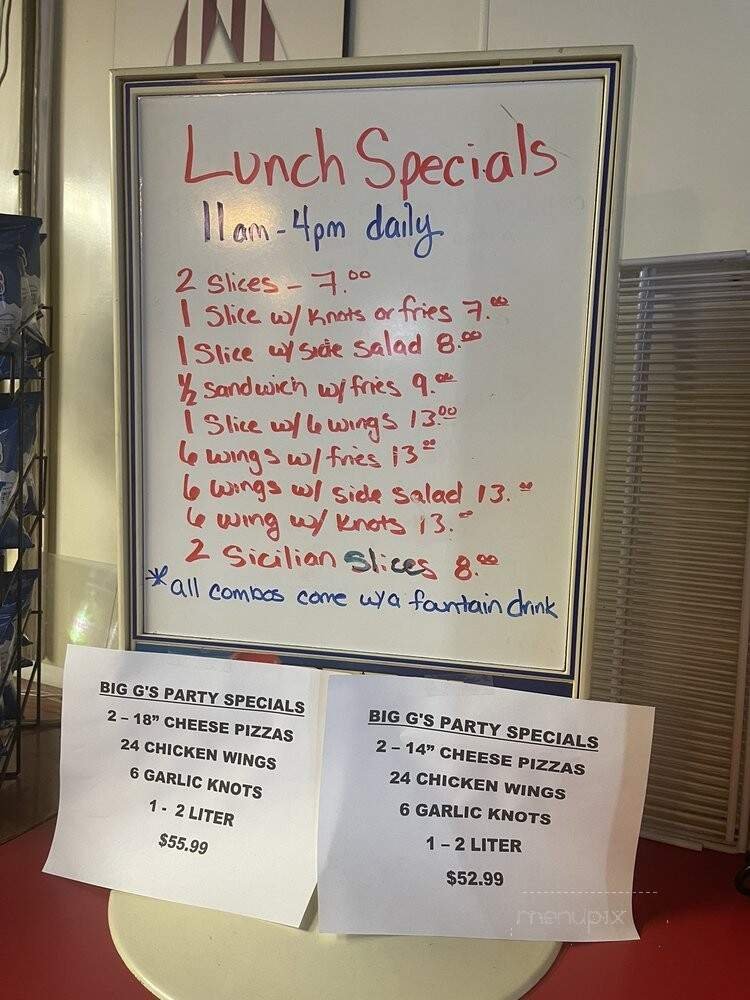 Lunch Specials
11am - 4pm daily
2 Slices - 7.00
1 Slice w/ Knots or fries 7.00
1 Slice w/ side Salad 8.00
1/2 sandwich w/ fries 9.00
1 Slice w/ 6 wings 13.00
6 wings w/ fries 13.00
6 wings w/ side salad 13.00
6 wing w/ Knots 13.00
2 Sicilian Slices 8.00
*all combos come w/a fountain drink
BIG G'S PARTY SPECIALS
2 – 18" CHEESE PIZZAS
24 CHICKEN WINGS
6 GARLIC KNOTS
1 - 2 LITER
$55.99
BIG G'S PARTY SPECIALS
2 – 14" CHEESE PIZZAS
24 CHICKEN WINGS
6 GARLIC KNOTS
1 – 2 LITER
$52.99
menupix